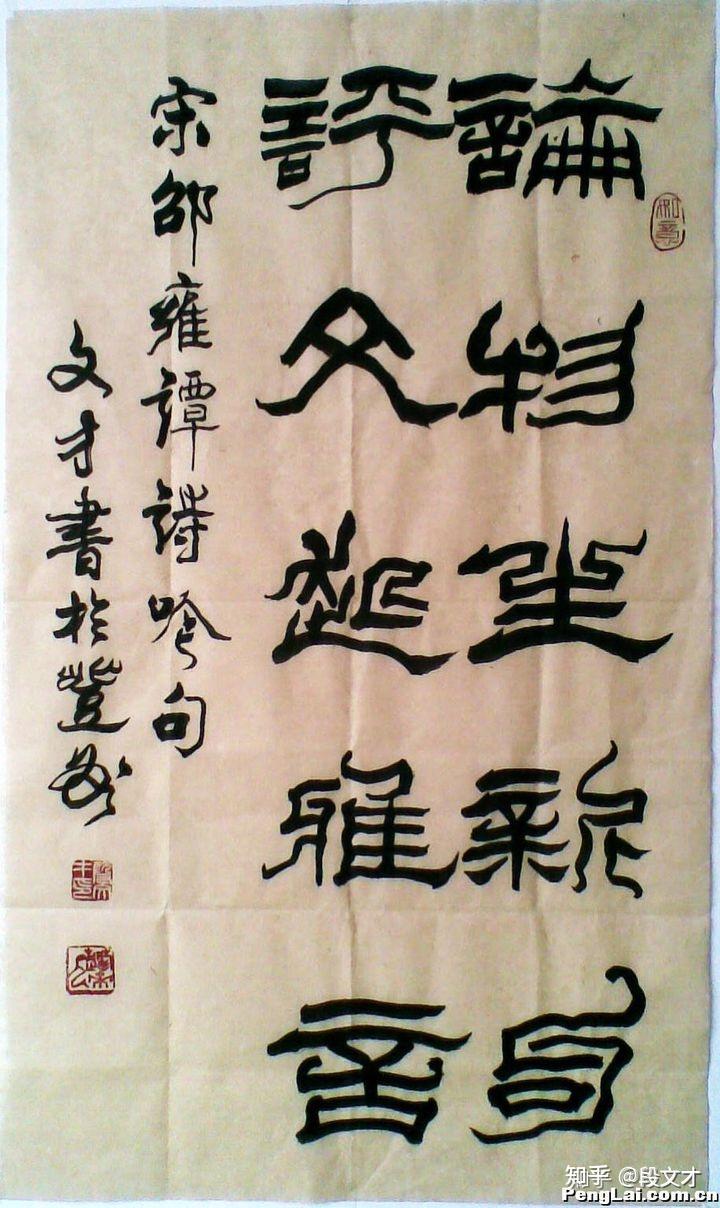 論物生新句
評文起雅言
宋邵雍譚詩吟句
文才書於登州
知乎 @段文才
PengLai.com.cn